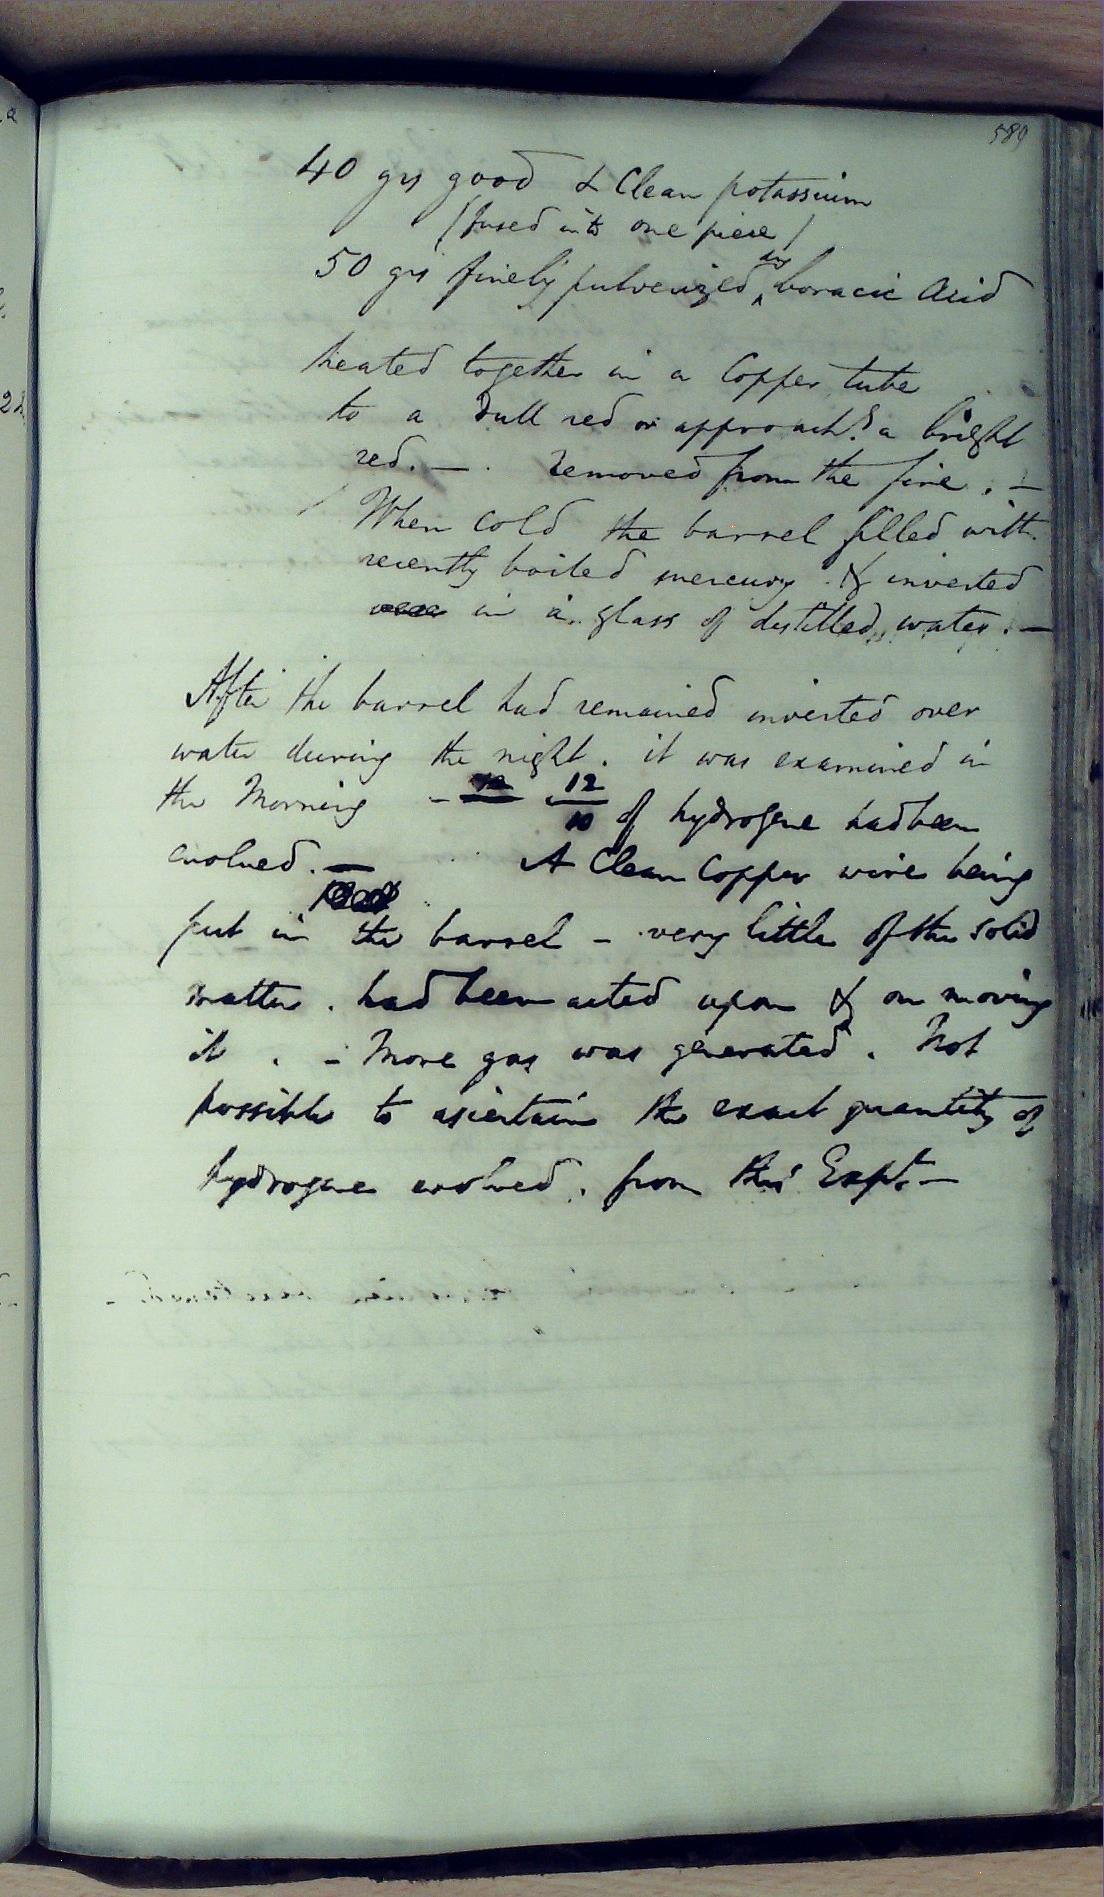 589
40 grs good & Clean potassium
(fused into one piece)
50 grs finely pulverized dry boracic Acid
heated together in a Copper tube
to a dull red or approachg a bright
red. — . removed from the fire . —
When cold the barrel filled with
recently boiled mercury & inverted
over in a glass of distilled water. —
After the barrel had remained inverted over
water during the night. it was examined in
the Morning - 12 12/10 of hydrogene had been
evolved. — A Clean Copper wire being
put in the barrel - very little of the solid
matter. had been acted upon & on moving
it . - More gas was generated. Not
possible to ascertain the exact quantity of
hydrogene evolved. from this Expt. —